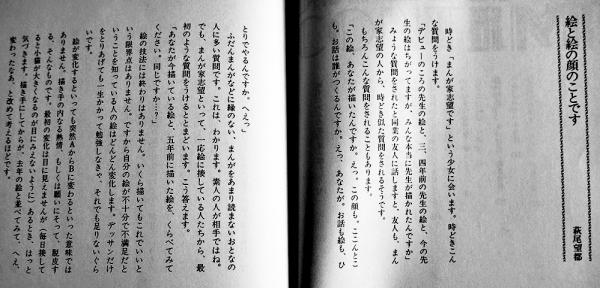 絵と絵の顔のことです
萩尾望都
時どき「まんが家志望です」という少女に会います。時どきこん
な質問をうけます。
「デビューのころの先生の絵と、三、四年前の先生の絵と、今の先
生の絵はちがってますが、みんな本当に先生が描かれたんですか」
みような質問をされたと同業の友人に話しますと、友人も、まん
が家志望の人から、時どき似た質問をされるそうです。
もちろんこんな質問をされることもあります。
「この絵、あなたが描いたんですか。えっ。この顔も。ここんとこ
も。お話は誰がつくるんですか。えっ、あなたが。お話も絵も、ひ
とりでやるんですか。へえっ」
ふだんまんがなどに縁のない、まんがをあまり読まないおとなの
人に多い質問です。これは、わかります。素人の人が相手ではね。
でも、まんが家志望といって、一応絵に接している人たちから、最
初のような質問をうけるととまどいます。こう答えます。
「あなたが今描いている絵と、五年前に描いた絵を、くらべてみて
ください。同じですか…？」
絵の技法には終わりはありません。いくら描いてもこれでいいと
いう限界点はありません。ですから自分の絵が不十分で不満足だと
いうことを知っている人の絵はどんどん変化します。デッサンだけ
をとりあげても一生かかって勉強しなきゃ、それでも足りないぐら
いです。
絵が変化するといっても突然AからBに変わるといった意味では
ありません。描き手の内なる熱情、もしくは願いにそって、脱皮す
る、そんなものです。最初の変化は目に見えませんが（毎日接して
ると小猫が大きくなるのが目にみえないように）あるとき、はっと
気づきます。描き手にしてからが、去年の絵と並べてみて、へえ、
変わったなあ、と改めて考えるほどです。